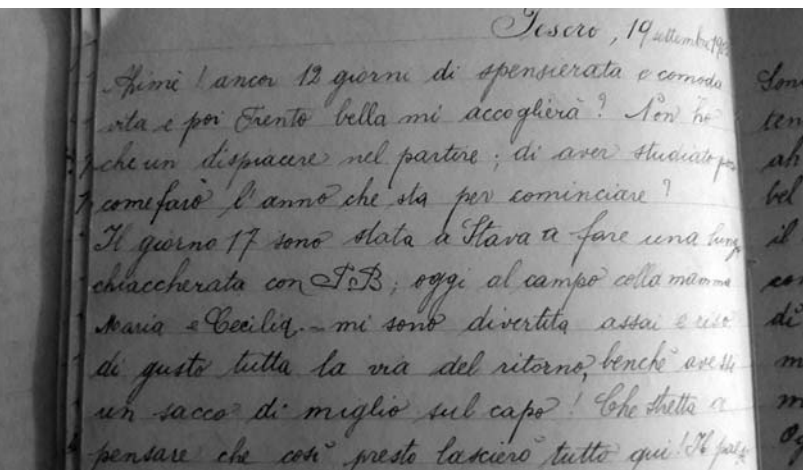 Tesero, 19 settembre 19
Ahimé! ancor 12 giorni di spensierata e comoda
vita e poi Trento bella mi accoglierà? Non ho
che un dispiacere nel partire; di aver studiato poco
come farò l'anno che sta per cominciare?
Il giorno 17 sono stata a Stava a fare una lunga
chiaccherata con P.B; oggi al campo colla mamma
Maria e Cecilia. - mi sono divertita assai e riso
di gusto tutta la via del ritorno, benchè avessi
un sacco di miglio sul capo! Che stretta a
pensare che così presto lascierò tutto qui! Il
Son
ten
ah
bel
il
con
di
m
m